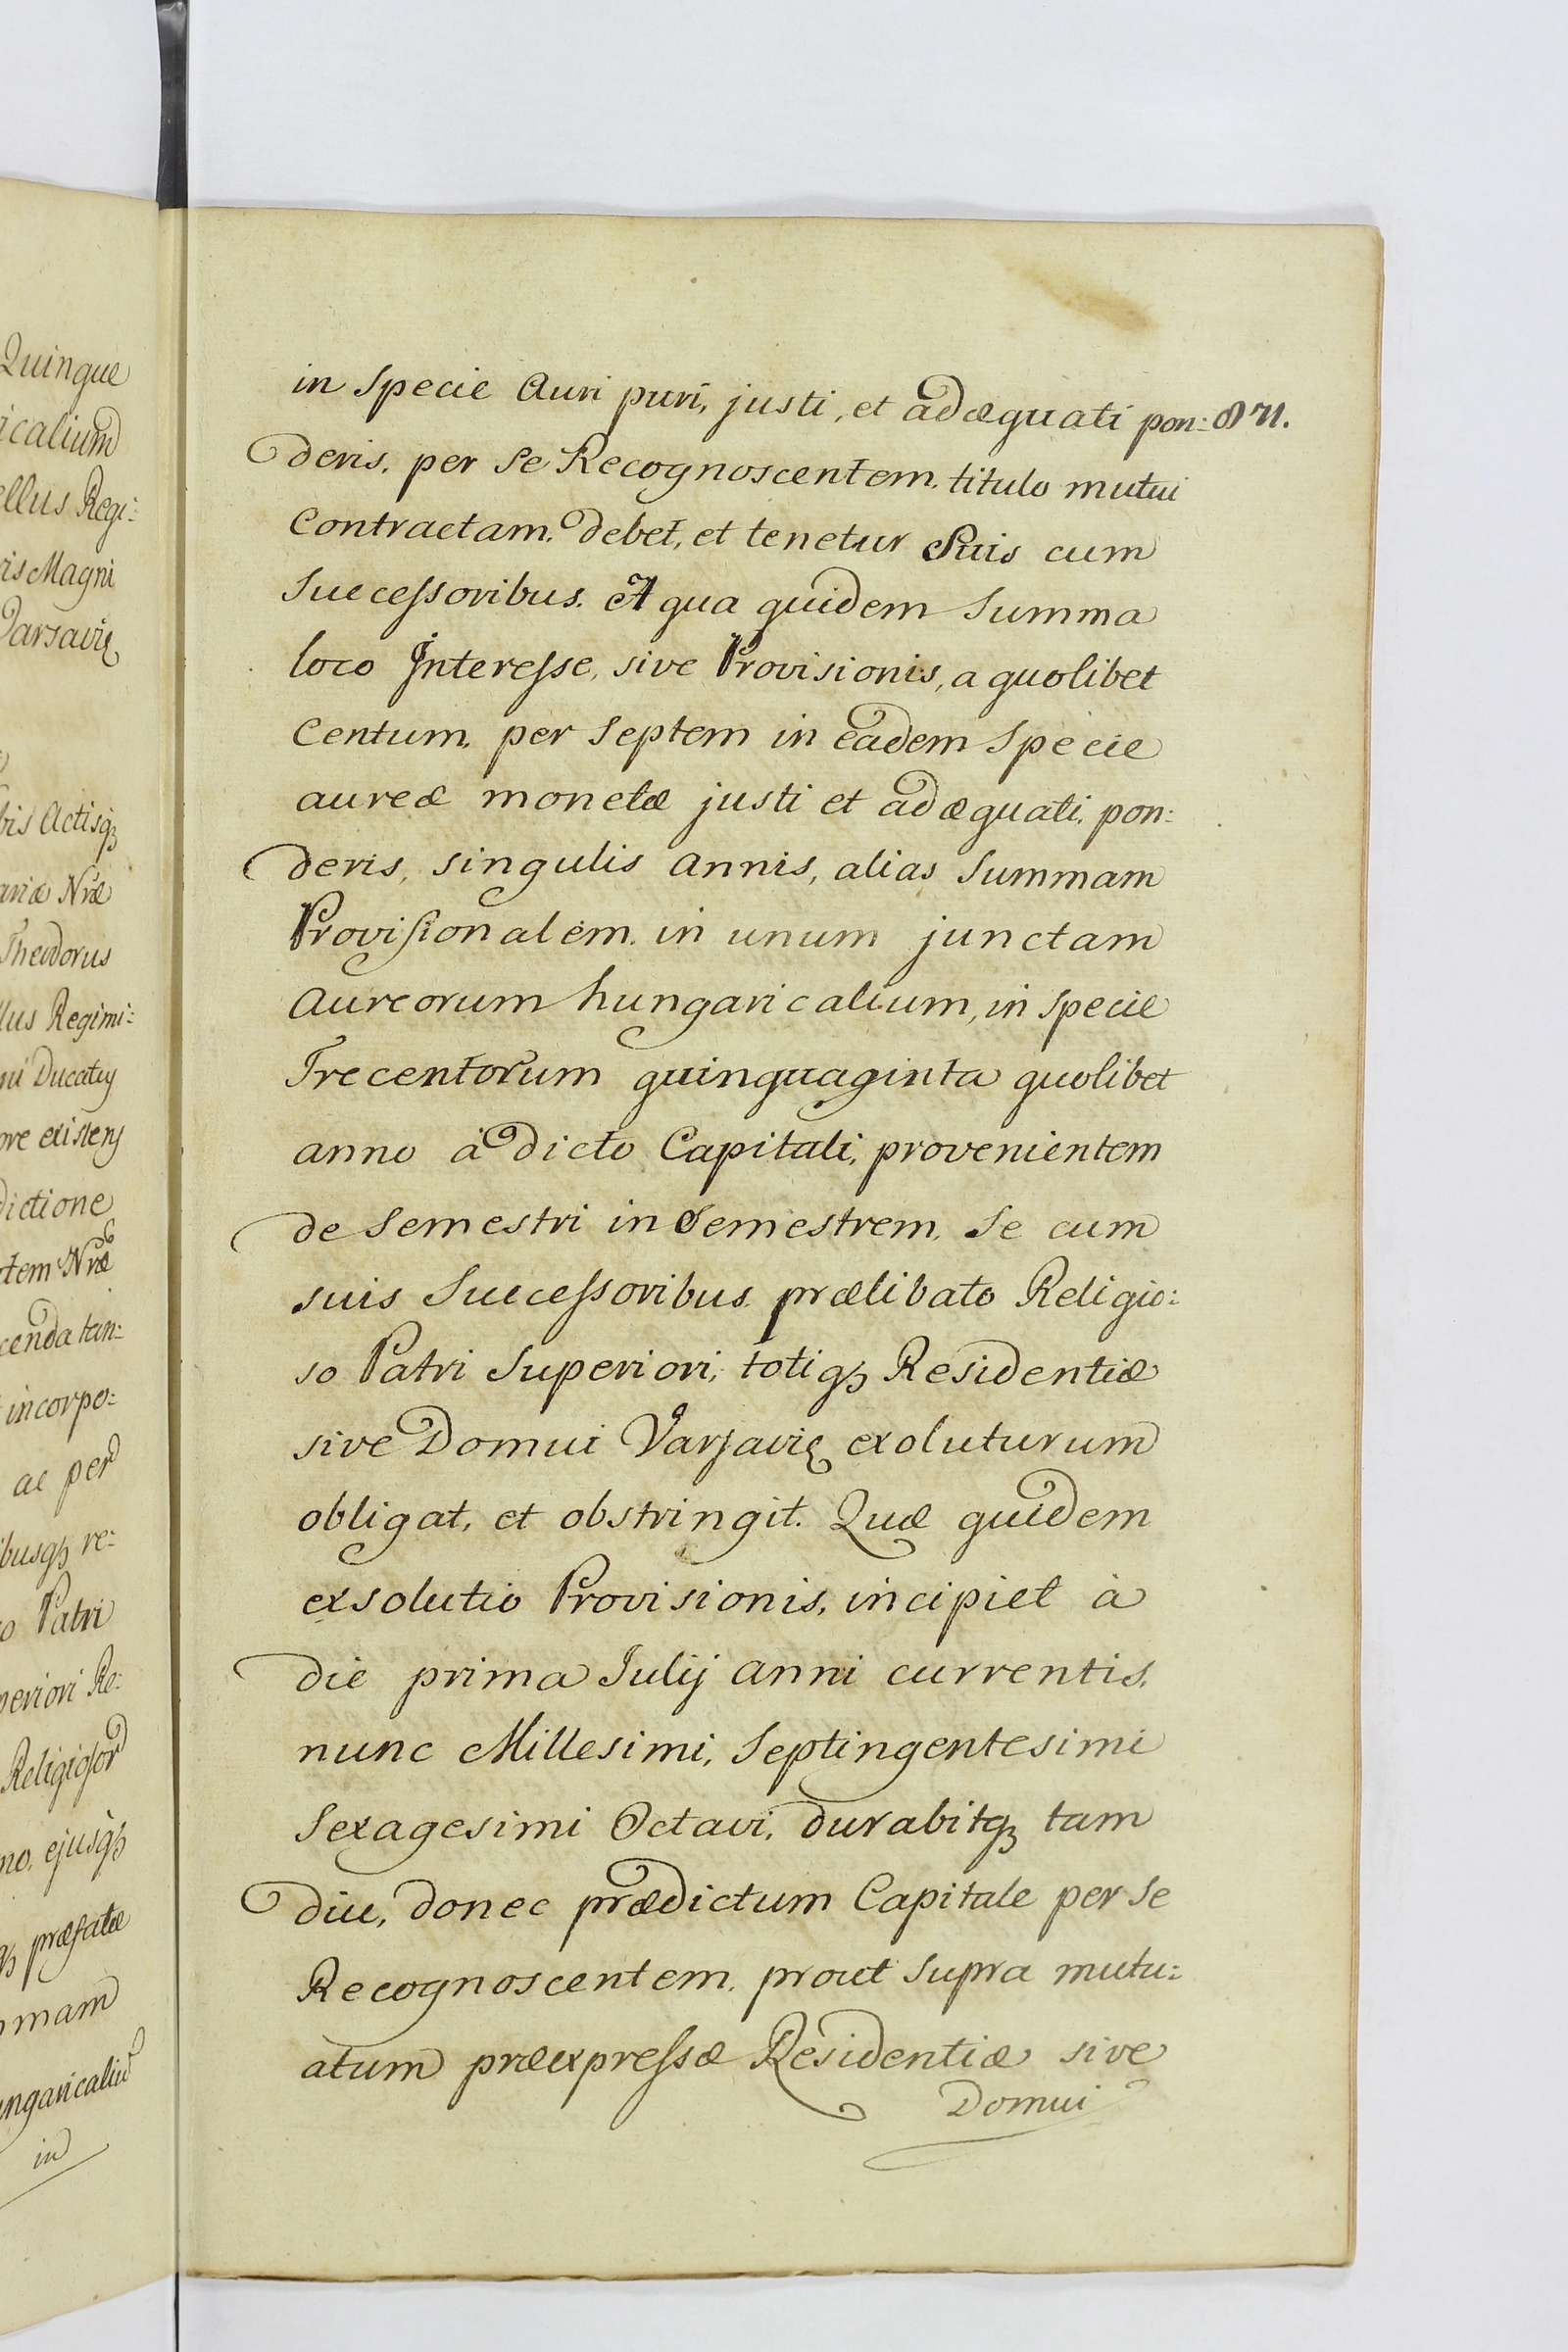 Quinque
icalium
ellus Regi:
ris Magni
Varsavię
bis Actisqȝ
Theodorus
lus Regimi:
ni Ducatus
ore existens
dictione
cenda tan:
incorpo:
ac per
ibusqȝ re:
o Patri
periori Re:
Religiosor
no, ejusqȝ
præfatæ
mam
ungaricaliu
in
in Specie Auri puri, justi, et adæquati pon:
deris, per Se Recognoscentem, titulo mutui
Contractam, debet, et tenetur Suis cum
Successoribus. A qua quidem Summa
loco Interesse, sive Provisionis, a quolibet
Centum, per Septem in eadem Specie
aureæ monetæ justi et adæquati, pon:
deris, singulis annis, alias Summam
Provisionalem, in unum junctam
Aureorum hungaricalium, in Specie
Trecentorum quinquaginta quolibet
anno à dicto Capitali, provenientem
de Semestri in Semestrem, Se cum
suis Successoribus, prælibato Religio:
so Patri Superiori, totiqȝ Residentiæ
sive Domui Varsavię exoluturum
obligat, et obstringit. Quæ quidem
exsolutio Provisionis, incipiet à
die prima Julij anni currentis,
nunc Millesimi, Septingentesimi
Sexagesimi Octavi, durabitqȝ tam
diu, donec prædictum Capitale per Se
Recognoscentem, prout Supra mutu:
atum præexpressæ Residentiæ sive
Domui